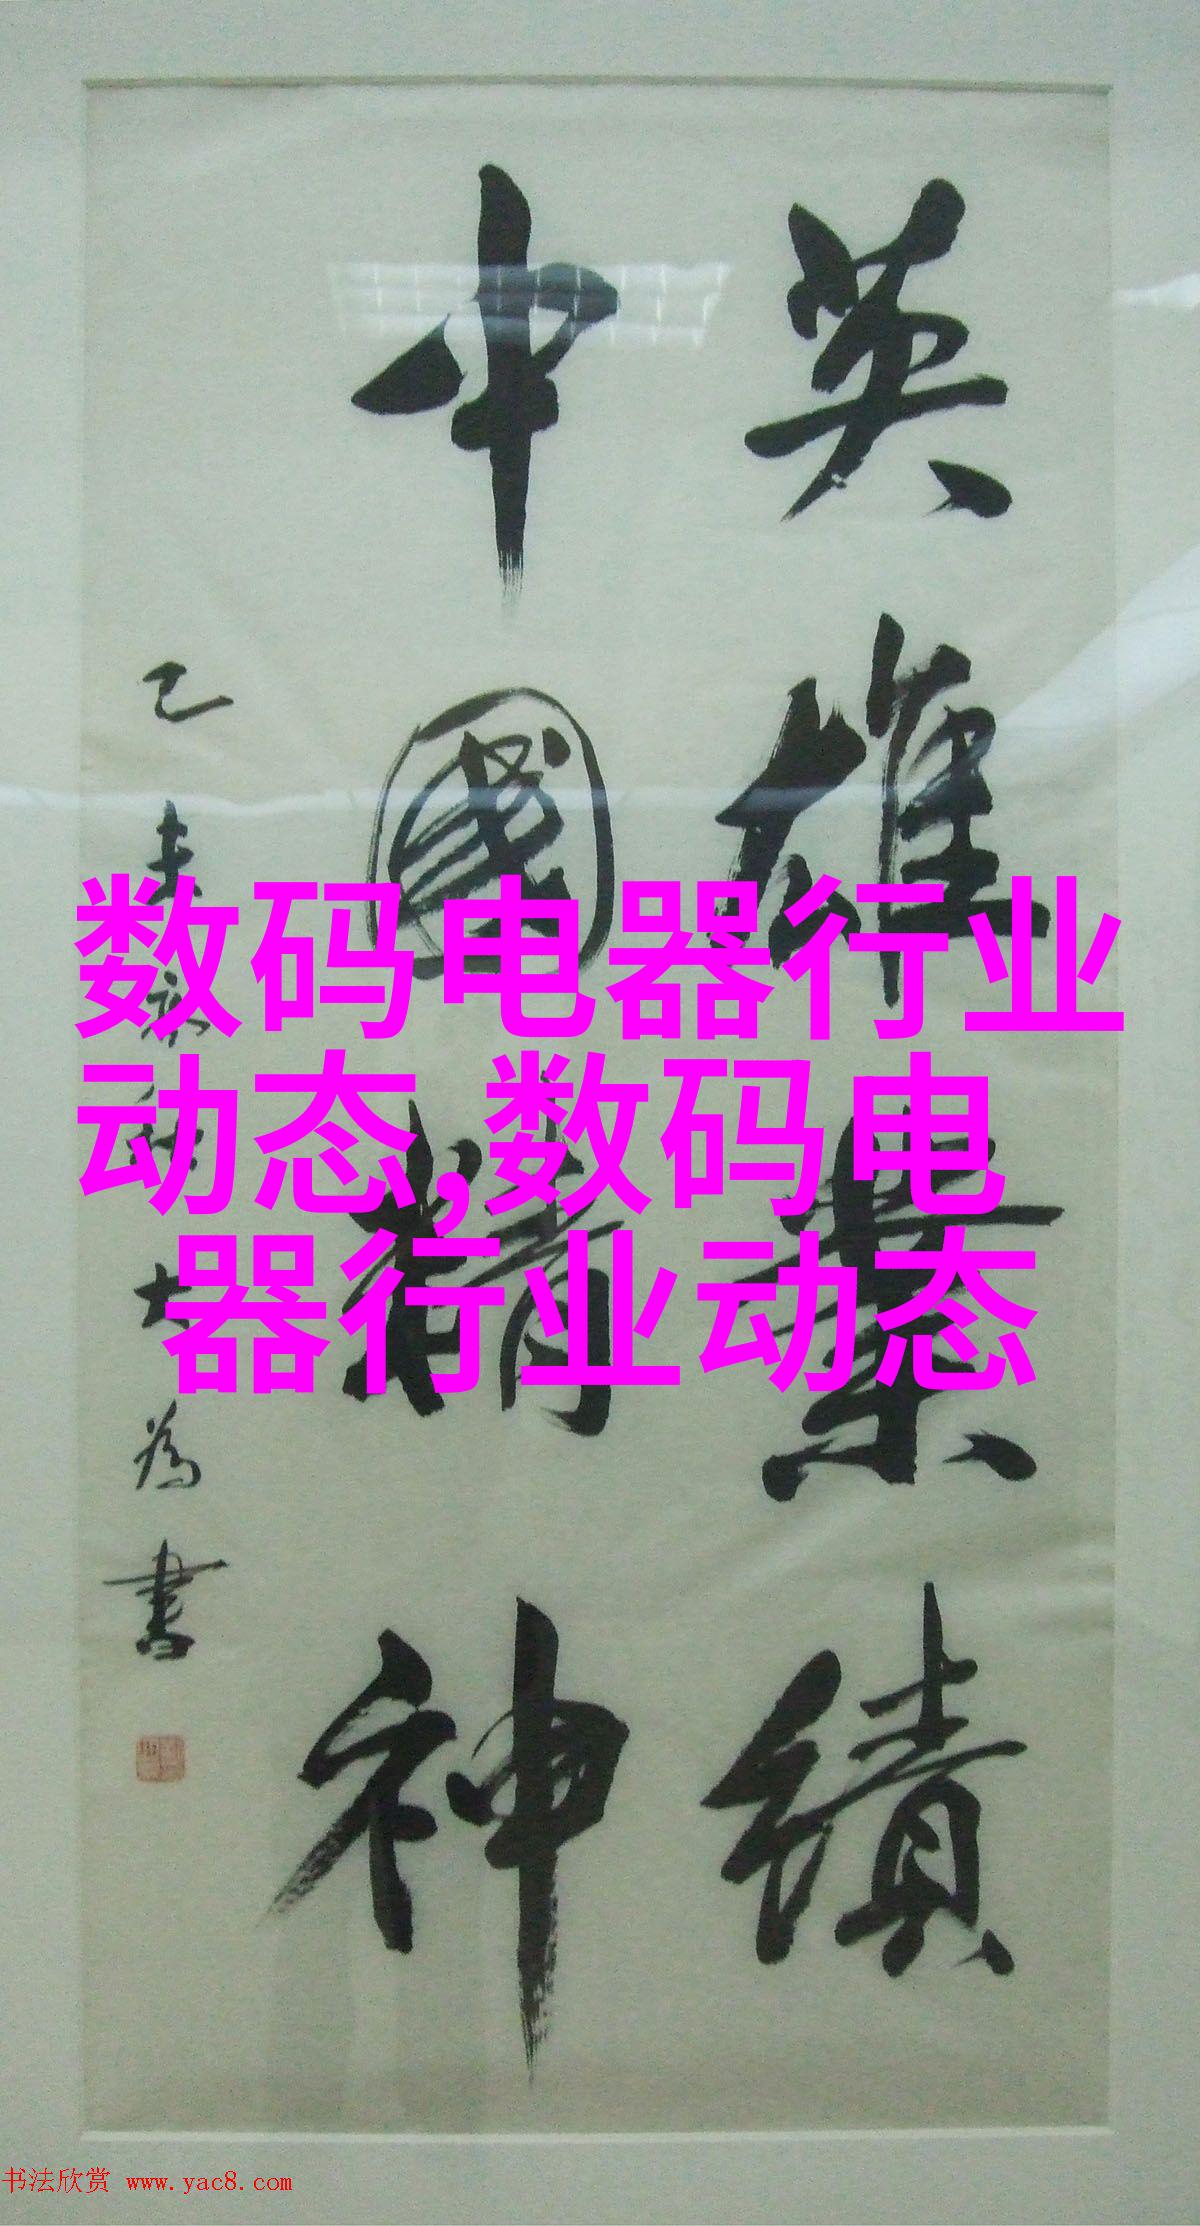 英雄業績
中國精神
乙未春 大為書
数码电器行业
动态,数码电
器行业动态
书法欣赏 www.yac8.com